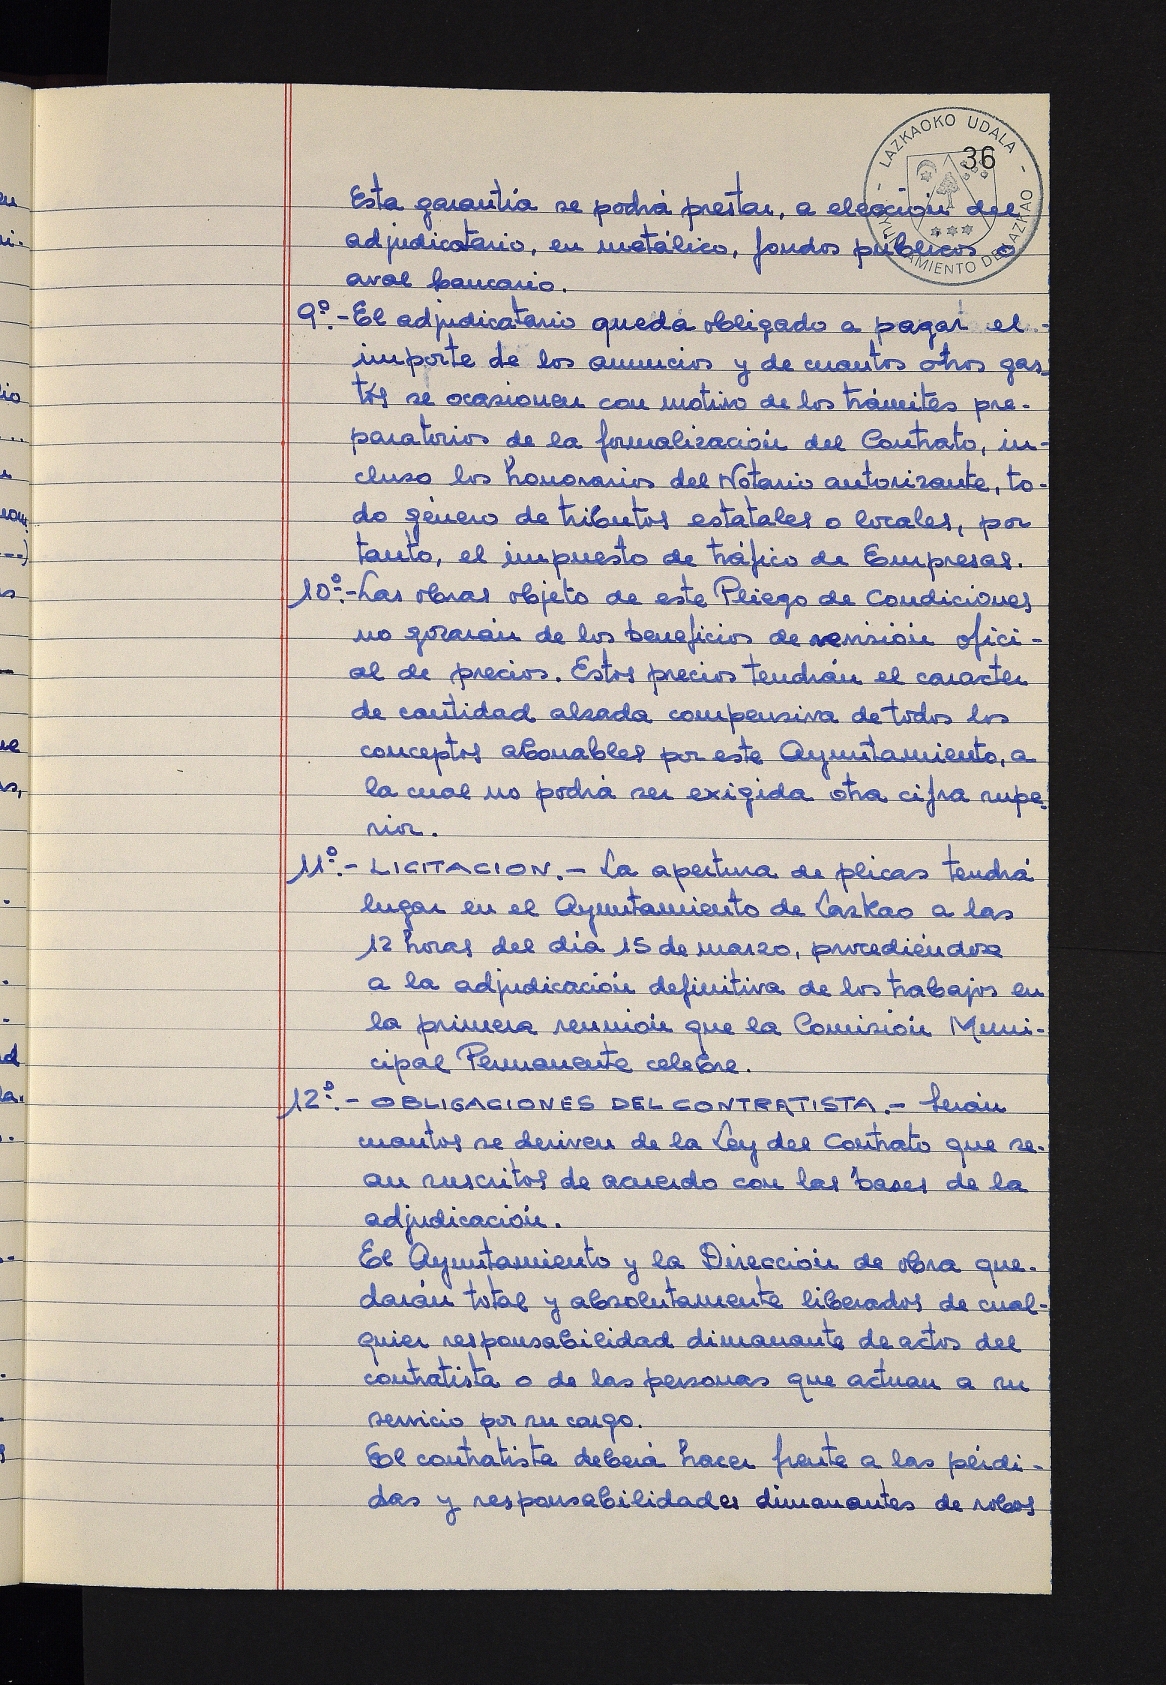 - LAZKAOKO UDALA -
AYUNTAMIENTO DE LAZKAO
36
Esta garantía se podrá prestar, a elección del
adjudicatario, en metálico, fondos públicos o
aval bancario.
9º.- El adjudicatario queda obligado a pagar el
importe de los anuncios y de cuantos otros gas-
tos se ocasionen con motivo de los trámites pre-
paratorios de la formalización del Contrato, in-
cluso los honorarios del Notario autorizante, to-
do género de tributos estatales o locales, por
tanto, el impuesto de tráfico de Empresas.
10º.- Las obras objeto de este Pliego de Condiciones
no gozarán de los beneficios de revisión ofici-
al de precios. Estos precios tendrán el caracter
de cantidad alzada compensiva de todos los
conceptos abonables por este Ayuntamiento, a
la cual no podrá ser exigida otra cifra supe-
rior.
11º.- LICITACION.- La apertura de plicas tendrá
lugar en el Ayuntamiento de Lazkao a las
12 horas del día 15 de marzo, procediéndose
a la adjudicación definitiva de los trabajos en
la primera reunión que la Comisión Muni-
cipal Permanente celebre.
12º.- OBLIGACIONES DEL CONTRATISTA.- Serán
cuantos se deriven de la Ley del Contrato que se-
an suscritos de acuerdo con las bases de la
adjudicación.
El Ayuntamiento y la Dirección de obra que-
darán total y absolutamente liberados de cual-
quier responsabilidad dimanante de actos del
contratista o de las personas que actuan a su
servicio por su cargo.
El contratista deberá hacer frente a las pérdi-
das y responsabilidades dimanantes de robos